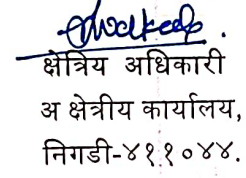 क्षेत्रिय अधिकारी
अ क्षेत्रीय कार्यालय,
निगडी-४११०४४.